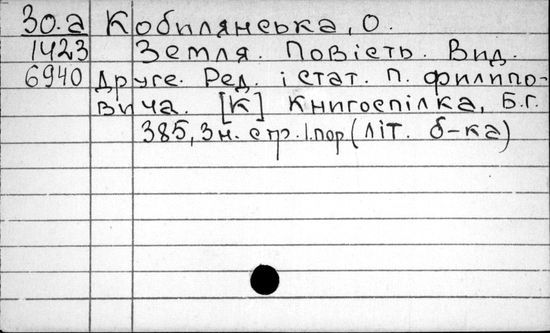 30.а Кобилянська, О.
1423 Земля. Повість. Вид.
6940 друге. Ред. і стат. П. Филипо-
вича. [К] Книгоспілка, Б.Г.
385, 3 н. стр. 1 пор (Літ. б-ка)